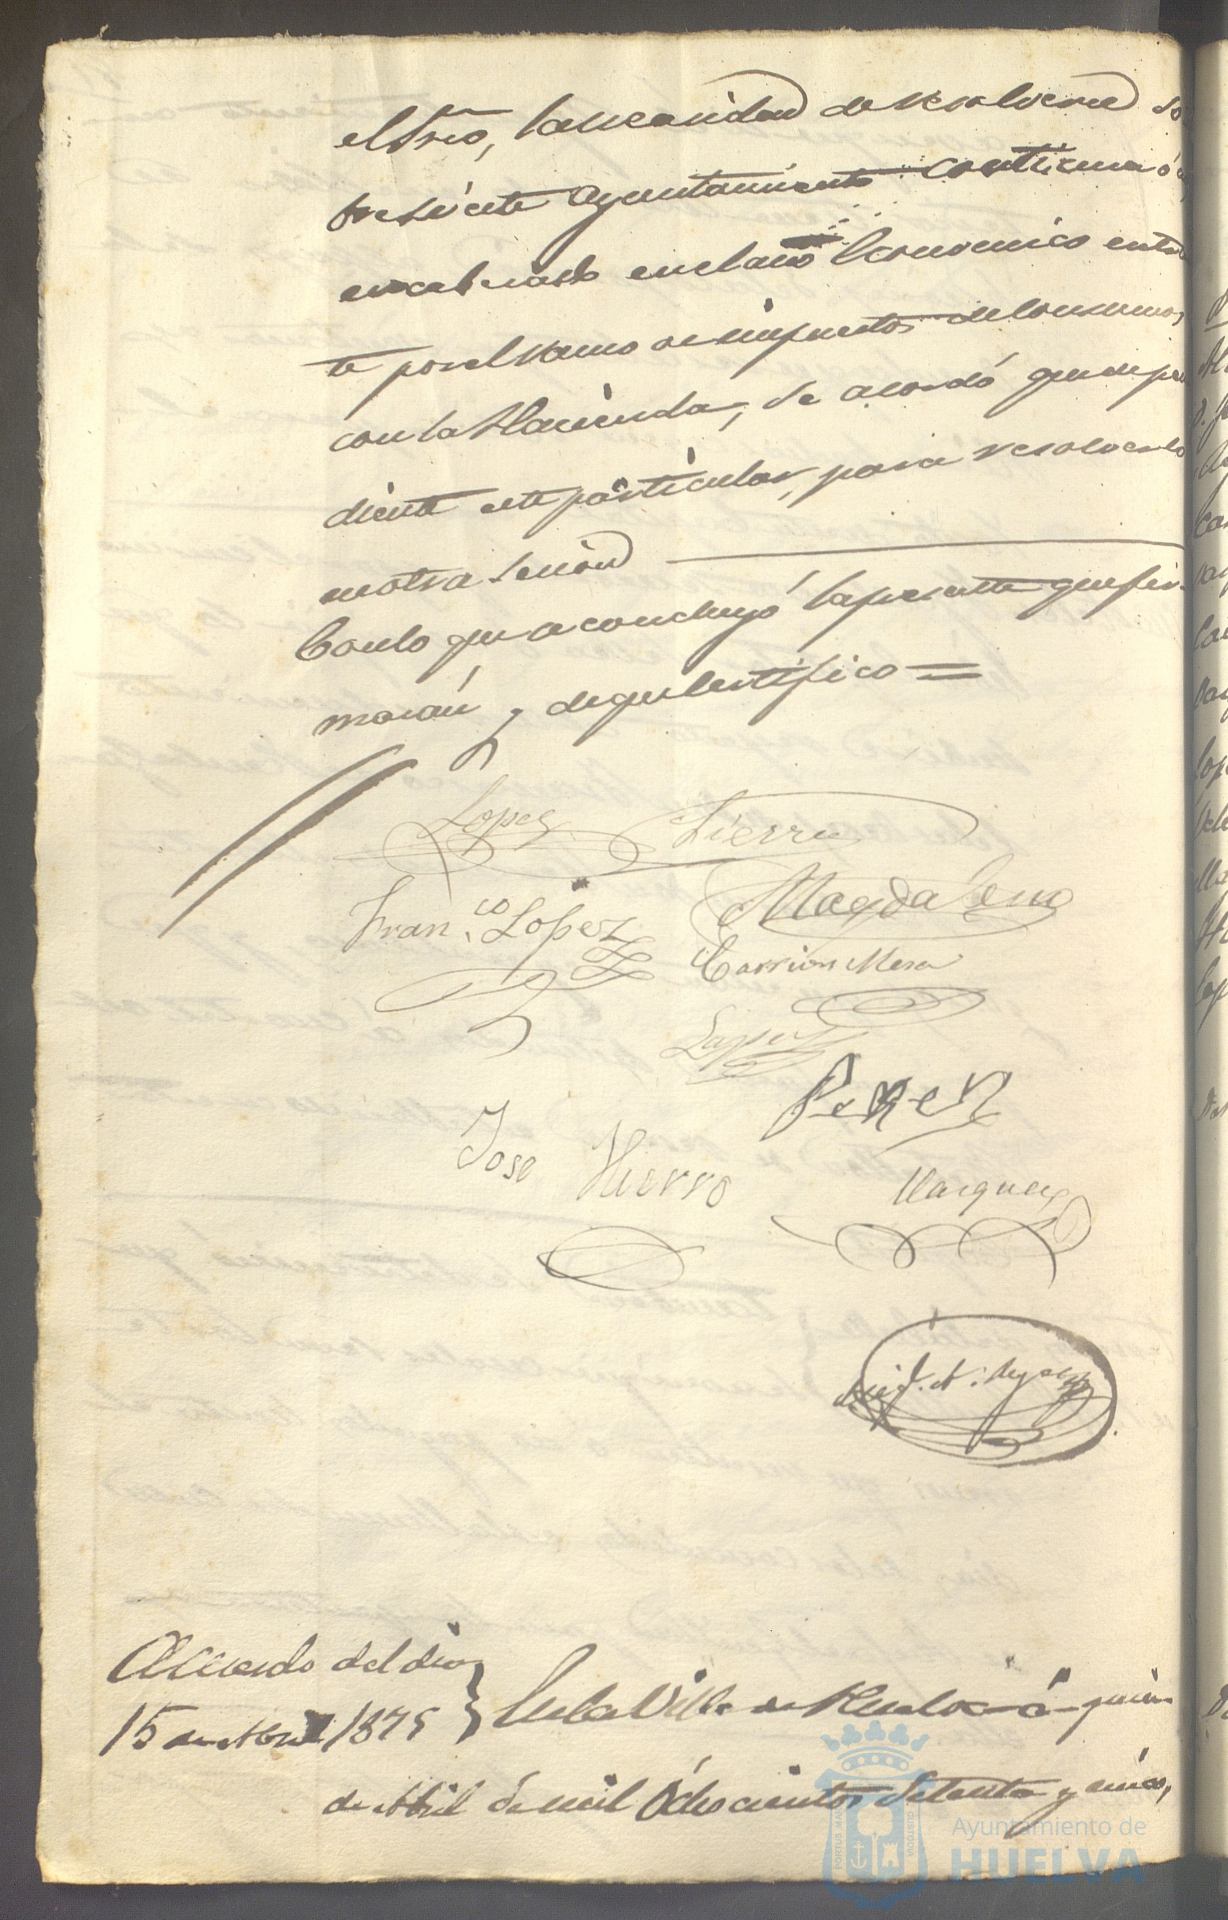 el Srio, la necesidad de resolver si
presente Ayuntamiento continua ó
encabezado en el año Economico en
te por el ramo de impuestos de Consumos
con la Hacienda, se acordó que depen
diente este particular, para resolverlo
en otra sesion
Con lo que se concluyó la presente que fir-
marán y de que Certifico =
Lopez
Sierra
Franco Lopez
Magdaleno
Carrion Mesa
Lopez
Perez
Jose Hierro
Vazquez
Acuerdo del dia
15 de Abril 1875
En la Villa de Huelva á quince
de Abril de mil Ochocientos Setenta y cinco,
Ayuntamiento de
HUELVA